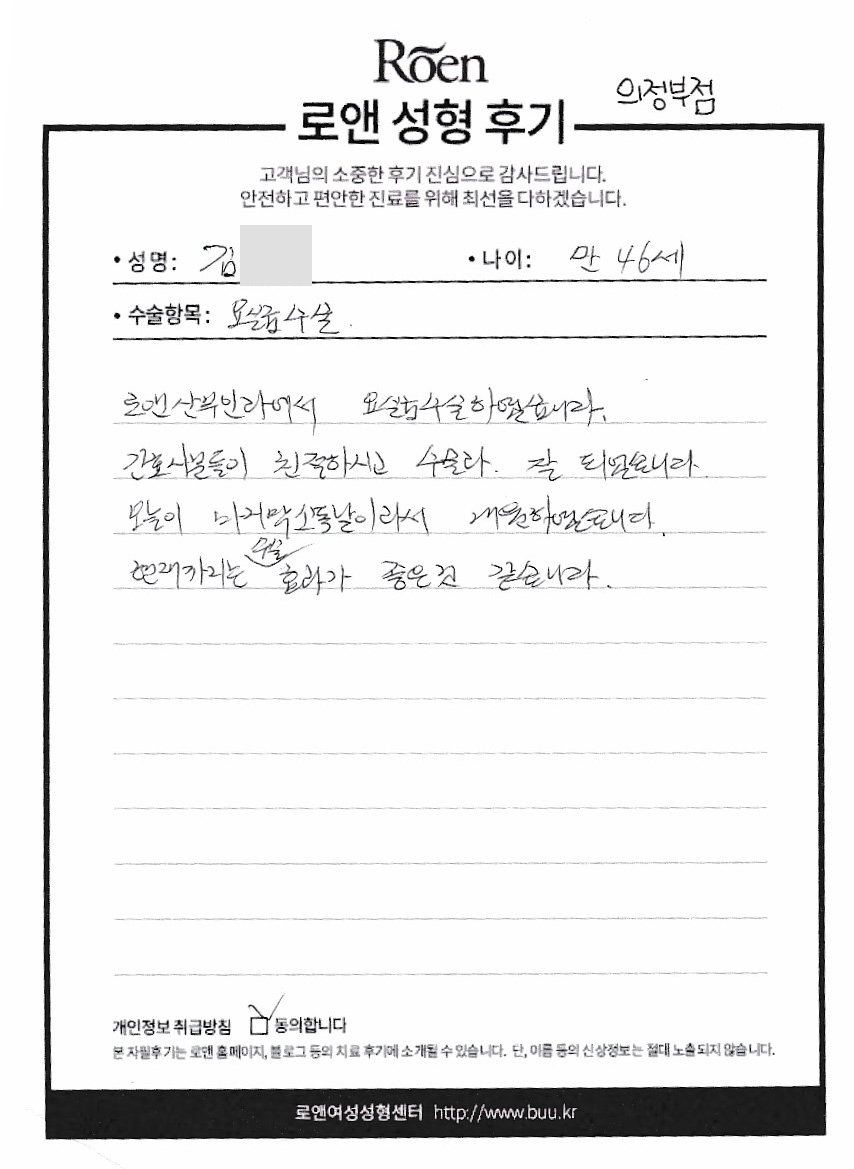 Roen
의정부점
로앤 성형 후기
고객님의 소중한 후기 진심으로 감사드립니다.
안전하고 편안한 진료를 위해 최선을 다하겠습니다.
• 성명: 김 • 나이: 만 46세
• 수술항목: 요실금수술.
로앤산부인과에서 요실금수술하였습니다.
간호사분들이 친절하시고 수술과. 잘 되었습니다.
오늘이 마지막소독날이라서 내원하였습니다.
현재까지는 수술 효과가 좋은것 같습니다.
개인정보 취급방침 동의합니다
본 자필후기는 로앤 홈페이지, 블로그 등의 치료 후기에 소개될 수 있습니다. 단, 이름 등의 신상정보는 절대 노출되지 않습니다.
로앤여성성형센터 http://www.buu.kr